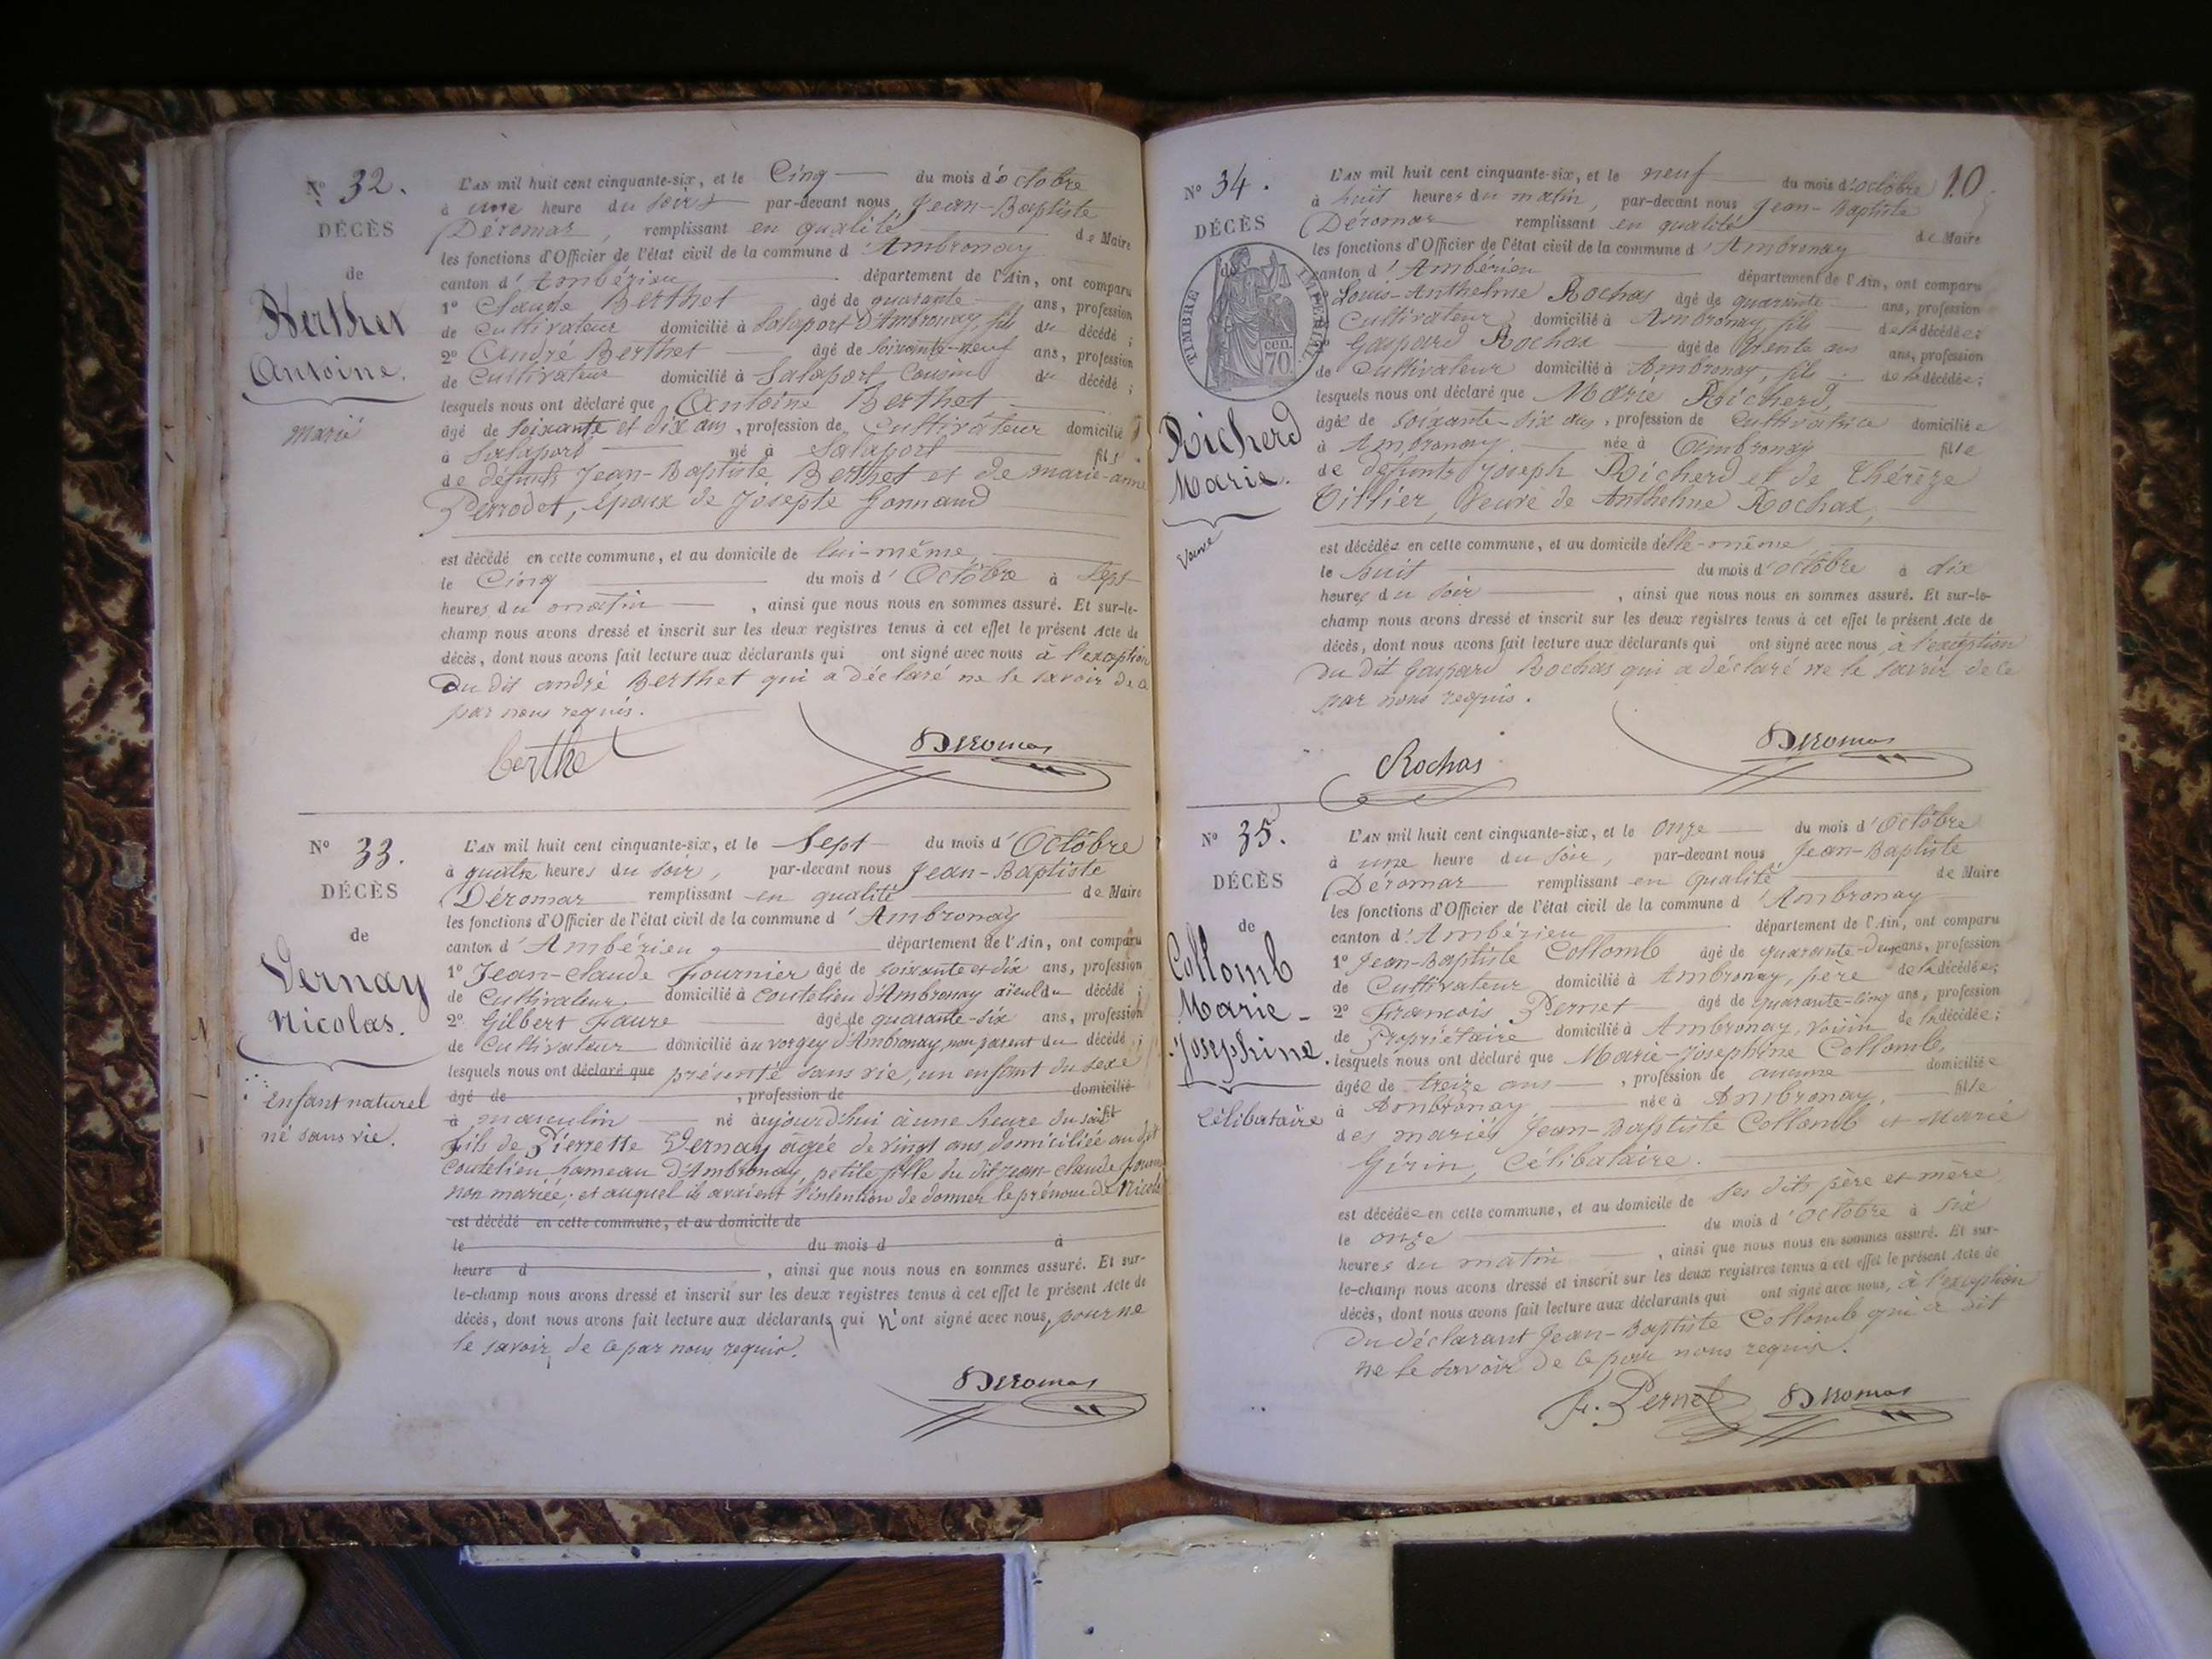 N° 32.
DÉCÈS
de
Berthet
Antoine.
marié
L'AN mil huit cent cinquante-six, et le Cinq du mois d'octobre
à une heure du soir par-devant nous Jean-Baptiste
Déromas, remplissant en qualité de Maire
les fonctions d'Officier de l'état civil de la commune d'Ambronay
canton d'Ambérieu département de l'Ain, ont comparu
1° Claude Berthet âgé de quarante ans, profession
de Cultivateur domicilié à Salaport d'Ambronay, fils du décédé;
2° André Berthet âgé de soixante-neuf ans, profession
de Cultivateur domicilié à Salaport Cousin du décédé;
lesquels nous ont déclaré que Antoine Berthet
âgé de soixante et dix ans, profession de Cultivateur domicilié
à Salaport né à Salaport fils
de défunts Jean-Baptiste Berthet et de marie-anne
Perrodet, époux de Josepte Gonnand
est décédé en cette commune, et au domicile de lui-même,
le Cinq du mois d'Octobre à sept
heures du matin, ainsi que nous nous en sommes assuré. Et sur-le-
champ nous avons dressé et inscrit sur les deux registres tenus à cet effet le présent Acte de
décès, dont nous avons fait lecture aux déclarants qui ont signé avec nous à l'exception
du dit andré Berthet qui a déclaré ne le savoir de ce
par nous requis.
berthet Deromas
N° 33.
DÉCÈS
de
Vernay
Nicolas.
Enfant naturel
né sans vie.
L'AN mil huit cent cinquante-six, et le Sept du mois d'Octobre
à quatre heures du soir, par-devant nous Jean-Baptiste
Déromas remplissant en qualité de Maire
les fonctions d'Officier de l'état civil de la commune d'Ambronay
canton d'Ambérieu département de l'Ain, ont comparu
1° Jean-Claude Fournier âgé de soixante et dix ans, profession
de Cultivateur domicilié à Coutelieu d'Ambronay aïeul du décédé;
2° Gilbert Faure âgé de quarante-six ans, profession
de Cultivateur domicilié au vorgey d'Ambronay, non parent du décédé;
lesquels nous ont déclaré que présenté sans vie, un enfant du sexe
âgé de , profession de domicilié
à masculin né aujourd'hui à une heure du soir fil
fils de Pierrette Vernay agée de vingt ans, domiciliée au dit
Coutelieu hameau d'Ambronay, petite fille du dit Jean-Claude fournier
non mariée; et auquel ils avaient l'intention de donner le prénom de Nicolas
est décédé en cette commune, et au domicile de
le du mois d à
heure d , ainsi que nous nous en sommes assuré. Et sur-
le-champ nous avons dressé et inscrit sur les deux registres tenus à cet effet le présent Acte de
décès, dont nous avons fait lecture aux déclarants qui n'ont signé avec nous, pour ne
le savoir, de ce par nous requis.
Deromas
10
N° 34.
DÉCÈS
de
TIMBRE IMPERIAL
70 cen.
Richerd
Marie.
Veuve
L'AN mil huit cent cinquante-six, et le neuf du mois d'octobre
à huit heures du matin, par-devant nous Jean-Baptiste
Déromas remplissant en qualité de Maire
les fonctions d'Officier de l'état civil de la commune d'Ambronay
canton d'Ambérieu département de l'Ain, ont comparu
Louis-Anthelme Rochas âgé de quarante ans, profession
Cultivateur domicilié à Ambronay, fils de la décédée;
Gaspard Rochas âgé de trente ans ans, profession
de Cultivateur domicilié à Ambronay, fils de la décédée;
lesquels nous ont déclaré que Marie Richerd,
âgée de soixante-six ans, profession de Cultivatrice domiciliée
à Ambronay née à Ambronay fille
de défunts Joseph Richerd et de Thérèze
Tillier, Veuve de Anthelme Rochas,
est décédée en cette commune, et au domicile d'elle-même
le huit du mois d'octobre à dix
heures du soir, ainsi que nous nous en sommes assuré. Et sur-le-
champ nous avons dressé et inscrit sur les deux registres tenus à cet effet le présent Acte de
décès, dont nous avons fait lecture aux déclarants qui ont signé avec nous, à l'exception
du dit Gaspard Rochas qui a déclaré ne le savoir de ce
par nous requis.
Rochas Deromas
N° 35.
DÉCÈS
de
Collomb
Marie-
Josephine.
Célibataire
L'AN mil huit cent cinquante-six, et le onze du mois d'Octobre
à une heure du soir, par-devant nous Jean-Baptiste
Déromas remplissant en qualité de Maire
les fonctions d'Officier de l'état civil de la commune d'Ambronay
canton d'Ambérieu département de l'Ain, ont comparu
1° Jean-Baptiste Collomb âgé de quarante-deux ans, profession
de Cultivateur domicilié à Ambronay, père de la décédée;
2° François Pernet âgé de quarante-cinq ans, profession
de Propriétaire domicilié à Ambronay, voisin de la décédée;
lesquels nous ont déclaré que Marie-Joséphine Collomb,
âgée de treize ans, profession de aucune domiciliée
à Ambronay née à Ambronay, fille
des mariés Jean-Baptiste Collomb et Marie
Girin, Célibataire.
est décédée en cette commune, et au domicile de ses dits père et mère
le onze du mois d'Octobre à six
heures du matin, ainsi que nous nous en sommes assuré. Et sur-
le-champ nous avons dressé et inscrit sur les deux registres tenus à cet effet le présent Acte de
décès, dont nous avons fait lecture aux déclarants qui ont signé avec nous, à l'exception
du déclarant Jean-Baptiste Collomb qui a dit
ne le savoir de ce par nous requis.
f. Pernet Deromas